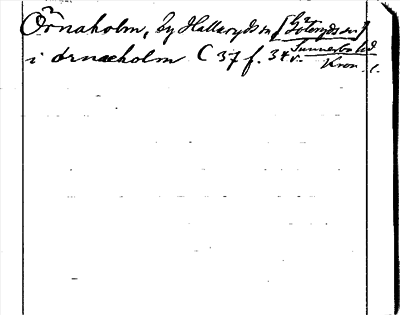 Örnaholm, by Hallaryds sn [Göteryds sn]
Sunnerbo hd
i ørnæholm C 37 f. 34 v.
Kron. l.